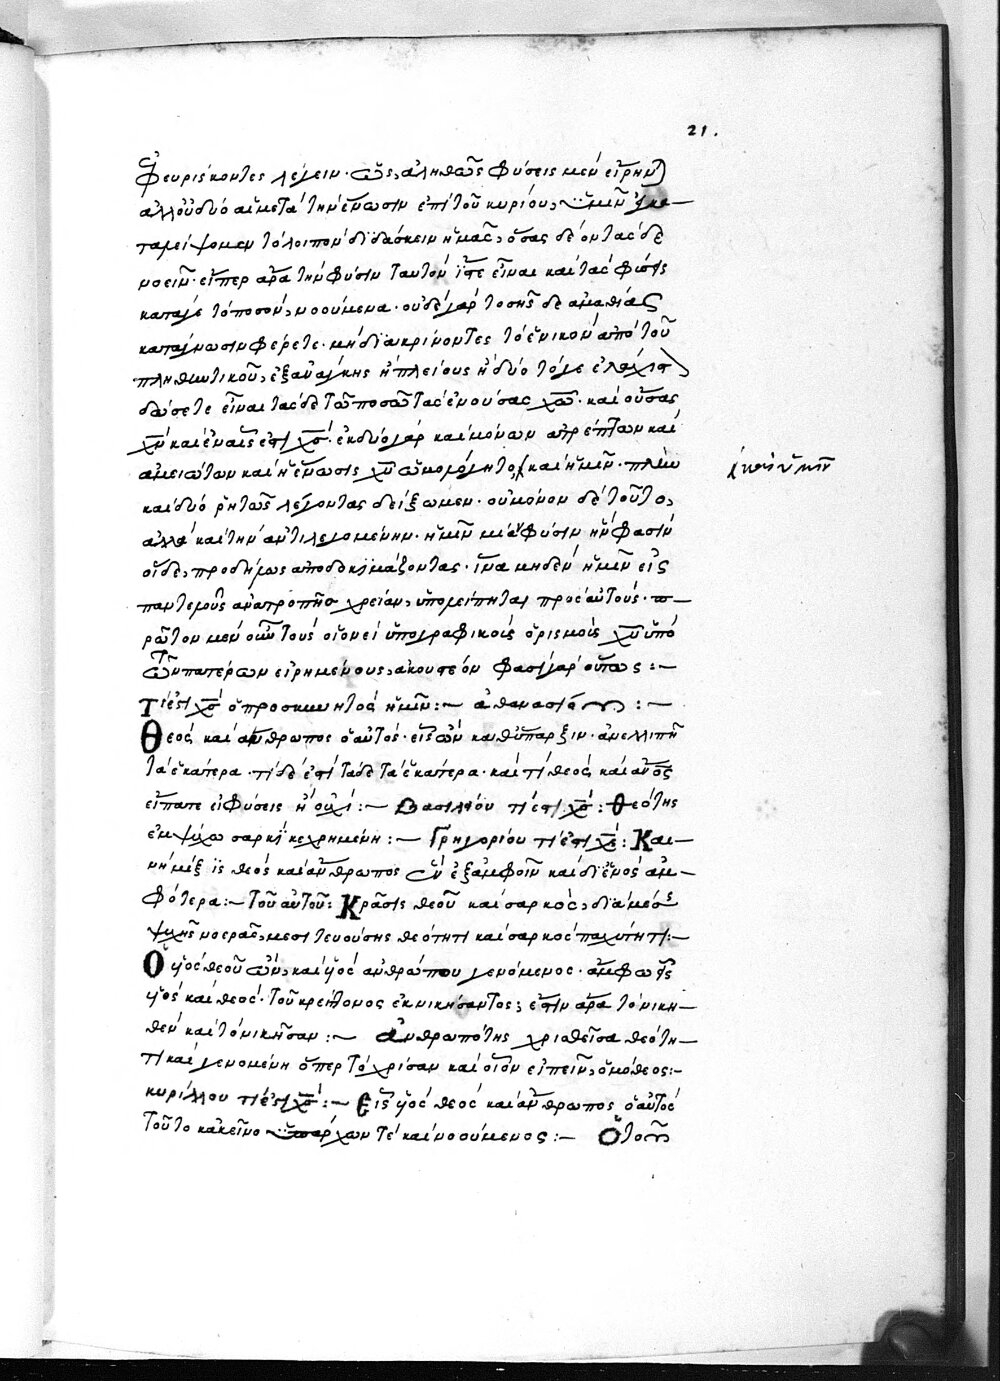 21.
φευρίσκοντες λέγειν· ὡς ἀληθῶς φύσεις μὲν εἰρην
ἀλλ' οὐ δύο αἱ μετὰ τὴν ἕνωσιν ἐπὶ τοῦ κυρίου, ὑμῖν
ταλείψομεν τὸ λοιπὸν διδάσκειν ἡμᾶς, ὅσας δὲ ὄντας δὲ
νοεῖν· εἴπερ ἄρα τὴν φύσιν ταυτὸν ἴστε εἶναι καὶ τὰς φύσεις
κατά γε τὸ ποσὸν νοούμενα· οὐδὲ γὰρ τοσῆσδε ἀμαθίας
κατάγνωσιν φέρετε· μὴ διακρίνοντες τὸ ἑνικὸν ἀπὸ τοῦ
πληθυντικοῦ, ἐξ ἀνάγκης ἢ πλείους ἢ δύο τό γε ἐλάχιστ
δώσετε εἶναι τάσδε τῶ ποσῶ τὰς ἑνούσας χῶ· καὶ οὔσας
χν καὶ ἐν αἷς ἐστι χς· ἐκ δύο γὰρ καὶ μόνων ἀτρέπτων καὶ
ἀμειώτων καὶ ἡ ἕνωσις χυ ὡμολόγηται καὶ ἡμῖν· πλὴν
καὶ δύο ῥητῶς λέγοντας δείξωμεν· οὐ μόνον δὲ τοῦτο,
ἀλλὰ καὶ τὴν ἀντιλεγομένην ἡμῖν μίαν φύσιν ἥν φασιν
οἵδε, προδήλως ἀποδοκιμάζοντας· ἵνα μηδὲν ἡμῖν εἰς
παντελοῦς ἀνατροπῆς χρείαν, ὑπολείπηται πρὸς αὐτούς· π
ρῶτον μὲν οὖν τοὺς οἱονεὶ ὑπογραφικοὺς ὁρισμοὺς χυ ὑπὸ
τῶν πατέρων εἰρημένους, ἀκουστέον φασὶ γὰρ οὕτως :-
Τί ἐστι χς ὁ προσκυνητὸς ἡμῖν:- ἀθανασίου :-
Θεὸς καὶ ἄνθρωπος ὁ αὐτός· εἷς ὢν καθ' ὕπαρξιν· ἀνελλιπῆ
τὰ ἑκάτερα· τί δέ ἐστι τάδε τὰ ἑκάτερα· καὶ τί θεός, καὶ ἄνος
εἴπατε εἰ φύσεις ἢ οὐχί:- Βασιλείου τί ἐστι χς: Θεότης
ἐμψύχω σαρκὶ κεχρημένη :- Γρηγορίου τί ἐστι χς: Και-
νὴ μίξις θεὸς καὶ ἄνθρωπος ἓν ἐξ ἀμφοῖν καὶ δι' ἑνὸς ἀμ-
φότερα:- τοῦ αὐτοῦ: Κρᾶσις θεοῦ καὶ σαρκός, διὰ μέσης
ψυχῆς νοερᾶς, μεσιτευούσης θεότητι καὶ σαρκὸς παχύτητι:-
Ὁ υἱὸς θεοῦ ὤν, καὶ υἱὸς ἀνθρώπου γενόμενος· ἄμφω εἷς
υἱὸς καὶ θεός· τοῦ κρείττονος ἐκνικήσαντος; ἔστιν ἄρα τὸ νικη-
θὲν καὶ τὸ νικῆσαν :- ἀνθρωπότης χρισθεῖσα θεότη-
τι καὶ γενομένη ὅπερ τὸ χρίσαν καὶ οἷον εἰπεῖν, ὁμόθεος:-
κυρίλλου τί ἐστι χς :- Εἷς υἱὸς θεὸς καὶ ἄνθρωπος ὁ αὐτὸς
τοῦτο κἀκεῖνο ὑπάρχων τὲ καὶ νοούμενος :- Ὅτου